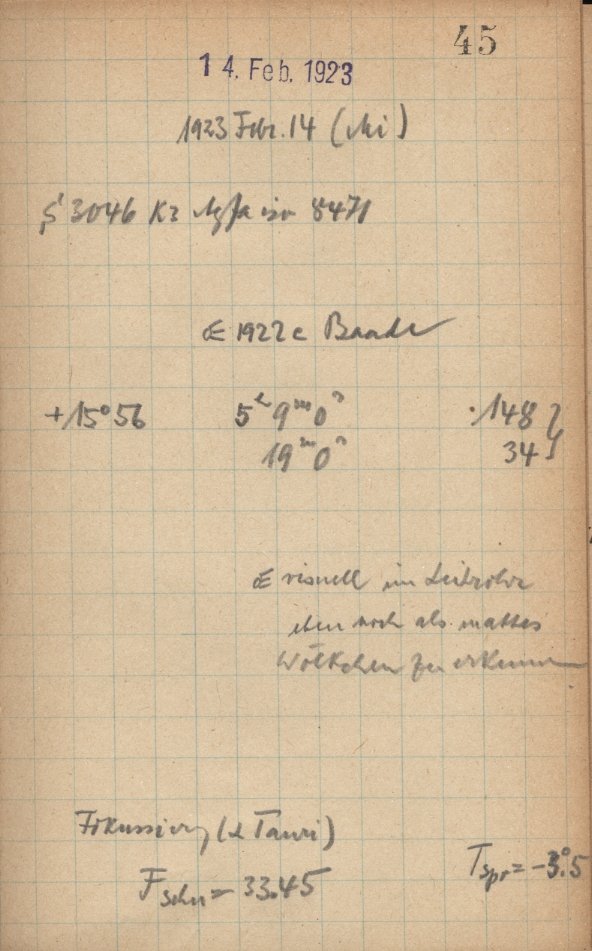 45
14. Feb. 1923
1923 Febr. 14 (Mi)
S 3046 K3 Agfa iso 8471
1922c Baade
+15°56 5h 9m 0s .148
19m 0s 34
visuell im Leitrohr
eben noch als mattes
Wölkchen zu erkennen
Fokussierung (α Tauri)
Fschn = 33.45 Tspr = -3°.5